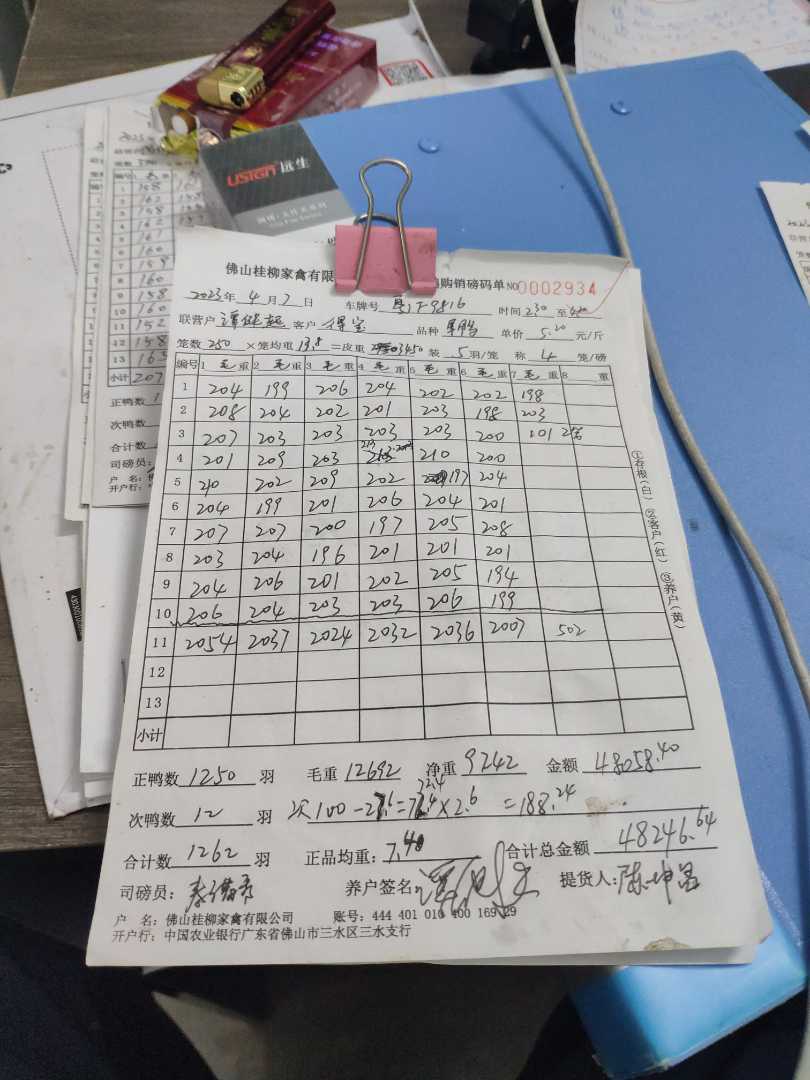 USIGN 远生
佛山桂柳家禽有限
购销磅码单 NO 0002934
2023年 4月7日 车牌号 时间 230 至
联营户 客户 得宝 品种 单价 5.20 元/斤
笼数 250 ×笼均重 13.8 =皮重 3450 装 5 羽/笼 称 4 笼/磅
编号 1 毛重 2 毛重 3 毛重 4 毛重 5 毛重 6 毛重 7 毛重 8 重
1 204 199 206 204 202 202 198
2 208 204 202 201 203 198 203
3 207 203 203 203 203 200 101 2笼
4 201 209 203 213 210 200
5 210 202 209 202 197 204
6 204 199 201 206 204 201
7 207 207 200 197 205 208
8 203 204 196 201 201 201
9 204 206 201 202 205 194
10 206 204 203 203 206 199
11 2054 2037 2024 2032 2036 2007 502
12
13
小计
①存根(白) ②客户(红) ③养户(黄)
正鸭数 1250 羽 毛重 12692 净重 9242 金额 48058.40
次鸭数 12 羽 次100-27.6=72.4×2.6=188.24
合计数 1262 羽 正品均重: 7.40 合计总金额 48246.64
司磅员: 养户签名: 提货人: 陈坤昌
户 名: 佛山桂柳家禽有限公司 账号: 444 401 010 400 169 29
开户行: 中国农业银行广东省佛山市三水区三水支行